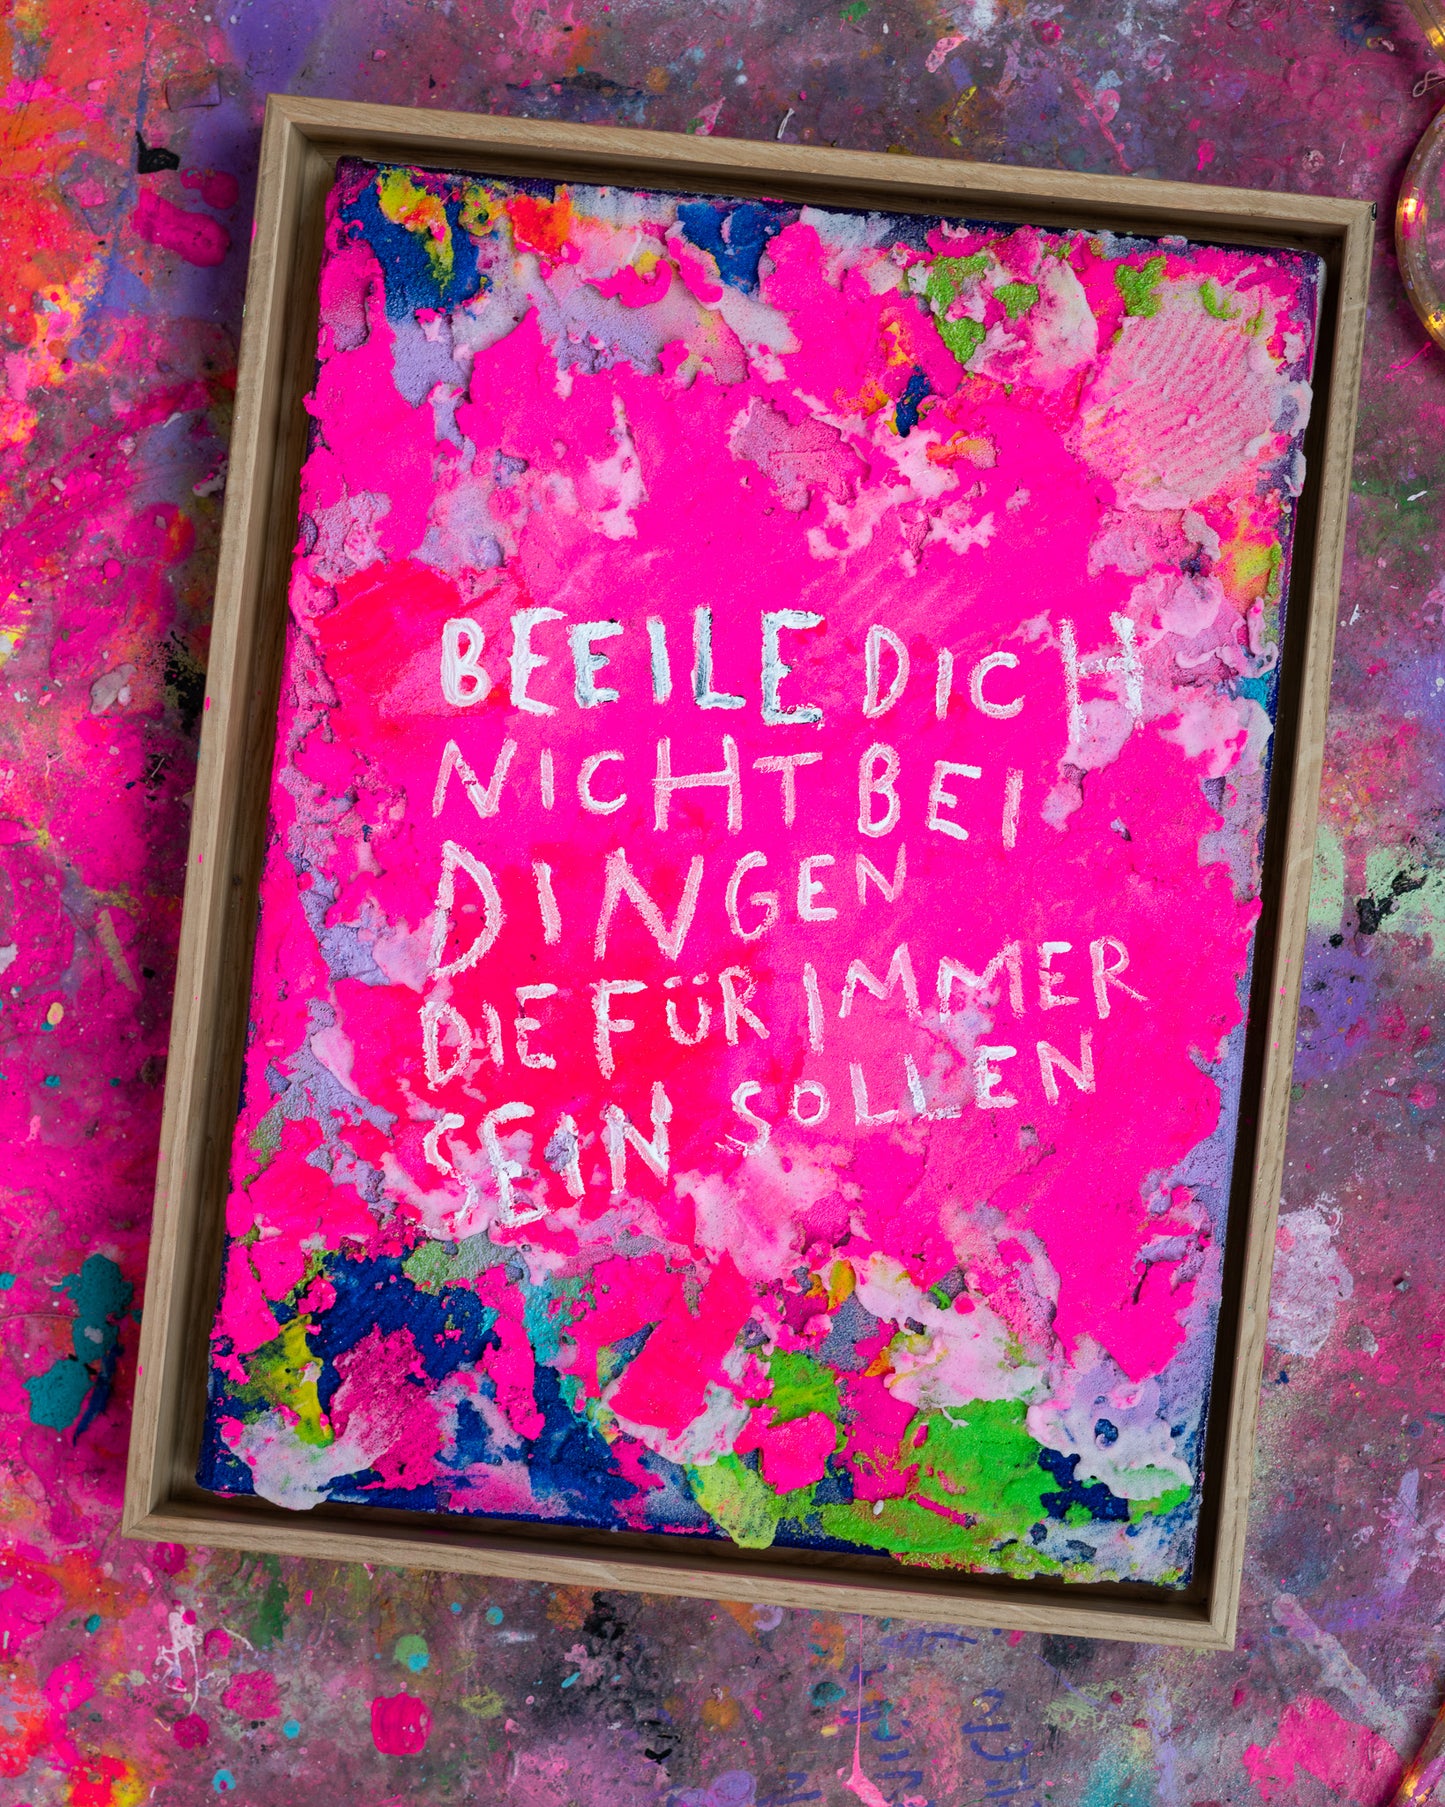 BEEILE DICH
NICHT BEI
DINGEN
DIE FÜR IMMER
SEIN SOLLEN